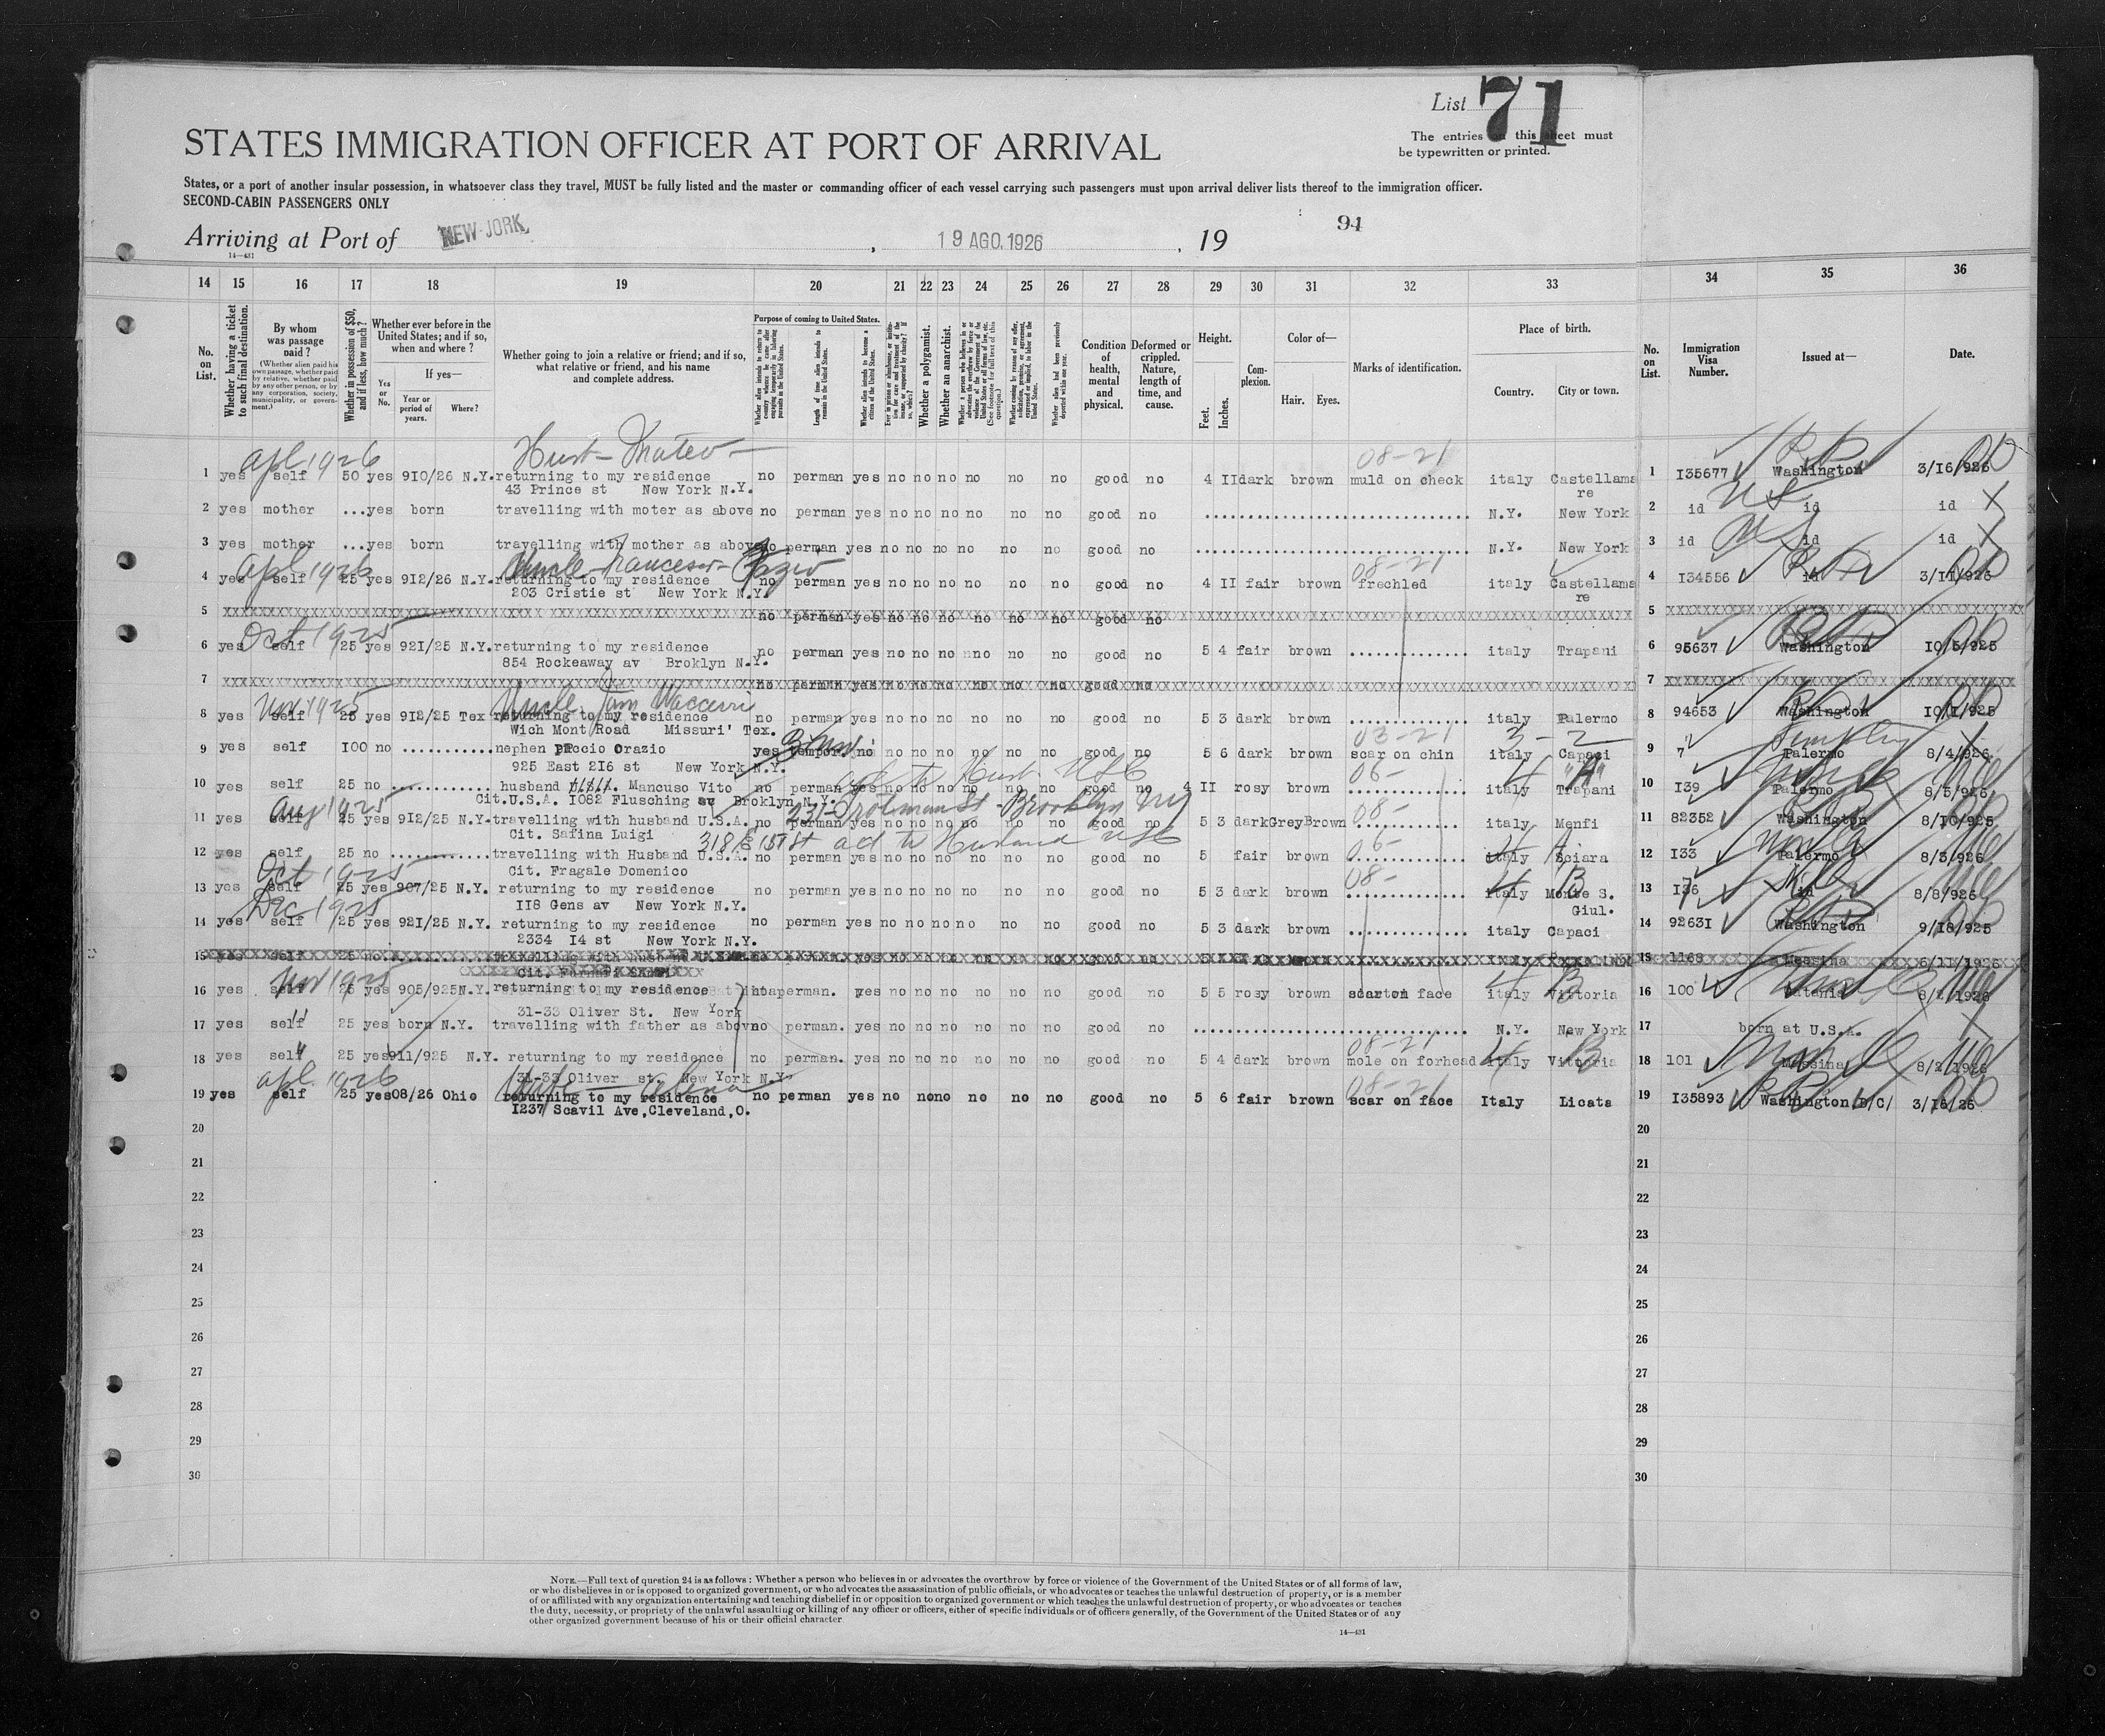 List 71
The entries on this sheet must
be typewritten or printed.
STATES IMMIGRATION OFFICER AT PORT OF ARRIVAL
States, or a port of another insular possession, in whatsoever class they travel, MUST be fully listed and the master or commanding officer of each vessel carrying such passengers must upon arrival deliver lists thereof to the immigration officer.
SECOND-CABIN PASSENGERS ONLY
94
Arriving at Port of NEW-JORK, 19 AGO. 1926, 19
14—431
14 15 16 17 18 19 20 21 22 23 24 25 26 27 28 29 30 31 32 33 34 35 36
No. on List.
Whether having a ticket to such final destination.
By whom was passage paid?
(Whether alien paid his own passage, whether paid by relative, whether paid by any other person, or by any corporation, society, municipality, or government.)
Whether in possession of $50, and if less, how much?
Whether ever before in the United States; and if so, when and where?
Yes or No.
If yes—
Year or period of years.
Where?
Whether going to join a relative or friend; and if so, what relative or friend, and his name and complete address.
Purpose of coming to United States.
Length of time alien intends to remain in the United States.
Whether alien intends to become a citizen of the United States.
Whether a polygamist.
Whether an anarchist.
Condition of health, mental and physical.
Deformed or crippled. Nature, length of time, and cause.
Height.
Feet. Inches.
Complexion.
Color of—
Hair. Eyes.
Marks of identification.
Place of birth.
Country. City or town.
No. on List.
Immigration Visa Number.
Issued at—
Date.
apl 1926 Hust- Mateo - 08-21
1 yes self 50 yes 910/26 N.Y. returning to my residence no perman yes no no no no no no good no 4 II dark brown muld on check italy Castellama 1 I35677 Washington 3/16/926
43 Prince st New York N.Y. re
2 yes mother ... yes born travelling with moter as above no perman yes no no no no no no good no N.Y. New York 2 id US id id X
3 yes mother ... yes born travelling with mother as above no perman yes no no no no no no good no N.Y. New York 3 id US id id X
apl 1926 Uncle Francesco Fazio 08-21
4 yes self 25 yes 912/26 N.Y. returning to my residence no perman yes no no no no no no good no 4 II fair brown frechled italy Castellama 4 I34556 id 3/11/926
203 Cristie st New York N.Y. re
5 no perman yes no no no no no no good no 5
Oct 1925
6 yes self 25 yes 921/25 N.Y. returning to my residence no perman yes no no no no no no good no 5 4 fair brown italy Trapani 6 95637 Washington 10/5/925
854 Rockeaway av Broklyn N.Y.
7 no perman yes no no no no no no good no 7
Nov 1925 Uncle Tom
8 yes self 25 yes 912/25 Tex returning to my residence no perman yes no no no no no no good no 5 3 dark brown italy Palermo 8 94653 Washington 10/1/925
Wich Mont Road Missouri' Tex. 03-21 3-2
9 yes self 100 no nephen Orazio yes tempor. no no no no no no no good no 5 6 dark brown scar on chin italy Capaci 9 Palermo 8/4/926
925 East 216 st New York N.Y. ad to Hust USC 06- 4 "A"
10 yes self 25 no husband Mancuso Vito no perman yes no no no no no no good no 4 II rosy brown italy Trapani 10 I39 Palermo 8/5/926
Cit.U.S.A. 1082 Flusching av Broklyn N.Y. Brooklyn NY
Aug 1925 08-
11 yes self 25 yes 912/25 N.Y. travelling with husband U.S.A. no perman yes no no no no no no good no 5 3 dark Grey Brown italy Menfi 11 82352 Washington 8/10/925
Cit. Safina Luigi 318 E 151 St ad to Husband USC 06-
12 yes self 25 no travelling with Husband U.S.A. no perman yes no no no no no no good no 5 fair brown italy Sciara 12 I33 Palermo 8/3/926
Oct 1925 Cit. Fragale Domenico 08- 4 B
13 yes self 25 yes 907/25 N.Y. returning to my residence no perman yes no no no no no no good no 5 3 dark brown italy Monte S. 13 id 8/8/926
Dec 1925 118 Gens av New York N.Y. Giul.
14 yes self 25 yes 921/25 N.Y. returning to my residence no perman yes no no no no no no good no 5 3 dark brown italy Capaci 14 92631 Washington 9/18/925
2334 I4 st New York N.Y.
15 yes self 25 no 15 1168 Messina 6/11/1926
Nov 1925 4 B
16 yes self 25 yes 905/925 N.Y. returning to my residence no perman. yes no no no no no no good no 5 5 rosy brown scar on face italy Vittoria 16 100 Catania 8/2/1926
31-33 Oliver St. New York
17 yes self 25 yes born N.Y. travelling with father as above no perman. yes no no no no no no good no N.Y. New York 17 born at U.S.A.
08-21 4 B
18 yes self 25 yes 911/925 N.Y. returning to my residence no perman. yes no no no no no no good no 5 4 dark brown mole on forhead italy Vittoria 18 101 Messina 8/2/1926
apl. 1926 31-33 Oliver st. New York N.Y. Wife 08-21
19 yes self 25 yes 08/26 Ohio returning to my residence no perman yes no no no no no no good no 5 6 fair brown scar on face Italy Licata 19 I35893 Washington D/C/ 3/16/26
1237 Scavil Ave, Cleveland, O.
20 20
21 21
22 22
23 23
24 24
25 25
26 26
27 27
28 28
29 29
30 30
NOTE.—Full text of question 24 is as follows: Whether a person who believes in or advocates the overthrow by force or violence of the Government of the United States or of all forms of law,
or who disbelieves in or is opposed to organized government, or who advocates the assassination of public officials, or who advocates or teaches the unlawful destruction of property, or is a member
of or affiliated with any organization entertaining and teaching disbelief in or opposition to organized government or which teaches the unlawful destruction of property, or who advocates or teaches
the duty, necessity, or propriety of the unlawful assaulting or killing of any officer or officers, either of specific individuals or of officers generally, of the Government of the United States or of any
other organized government because of his or their official character
14—431